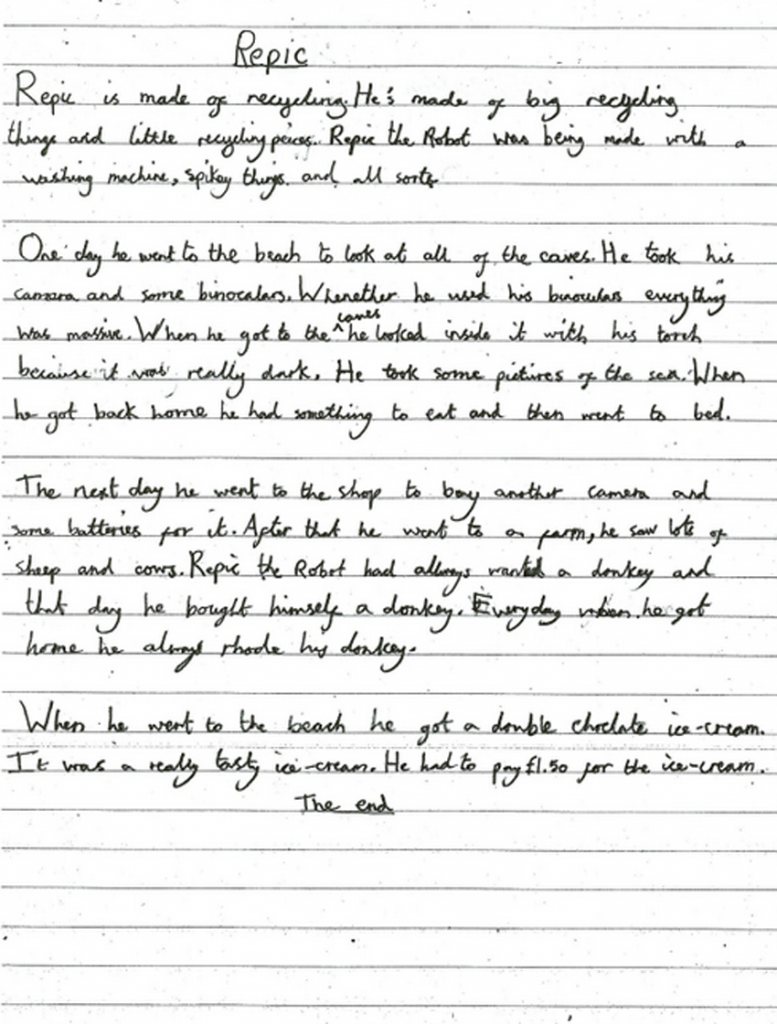 Repic
Repic is made of recycling. He's made of big recycling
things and little recycling peices. Repic the Robot was being made with a
washing machine, spikey things and all sorts
One day he went to the beach to look at all of the caves. He took his
camera and some binoculars. Whenether he used his binoculars everything
was massive. When he got to the ^caves he looked inside it with his torch
because it was really dark. He took some pictures of the sea. When
he got back home he had something to eat and then went to bed.
The next day he went to the shop to buy another camera and
some batteries for it. After that he went to a farm, he saw lots of
sheep and cows. Repic the Robot had allways wanted a donkey and
that day he bought himself a donkey. Everyday when he got
home he always rhode his donkey.
When he went to the beach he got a double choclate ice-cream.
It was a really tasty ice-cream. He had to pay £1.50 for the ice-cream.
The end